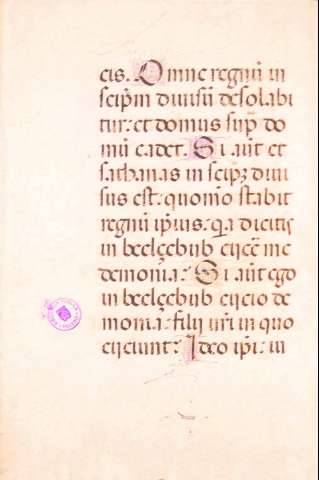 cis. Omne regnū in
seip̄m diuisū desolabi
tur: et domus sup̄ do
mū cadet. Si aūt et
sathanas in seip̄ȝ diui
sus est: quomō stabit
regnū ip̄ius. q̄a dicitis
in beelçebub eijcē me
demonia: Si aūt ego
in beelçebub eijcio de
monia: filij ur̄i in quo
eijciunt: Ideo ip̄i: iu